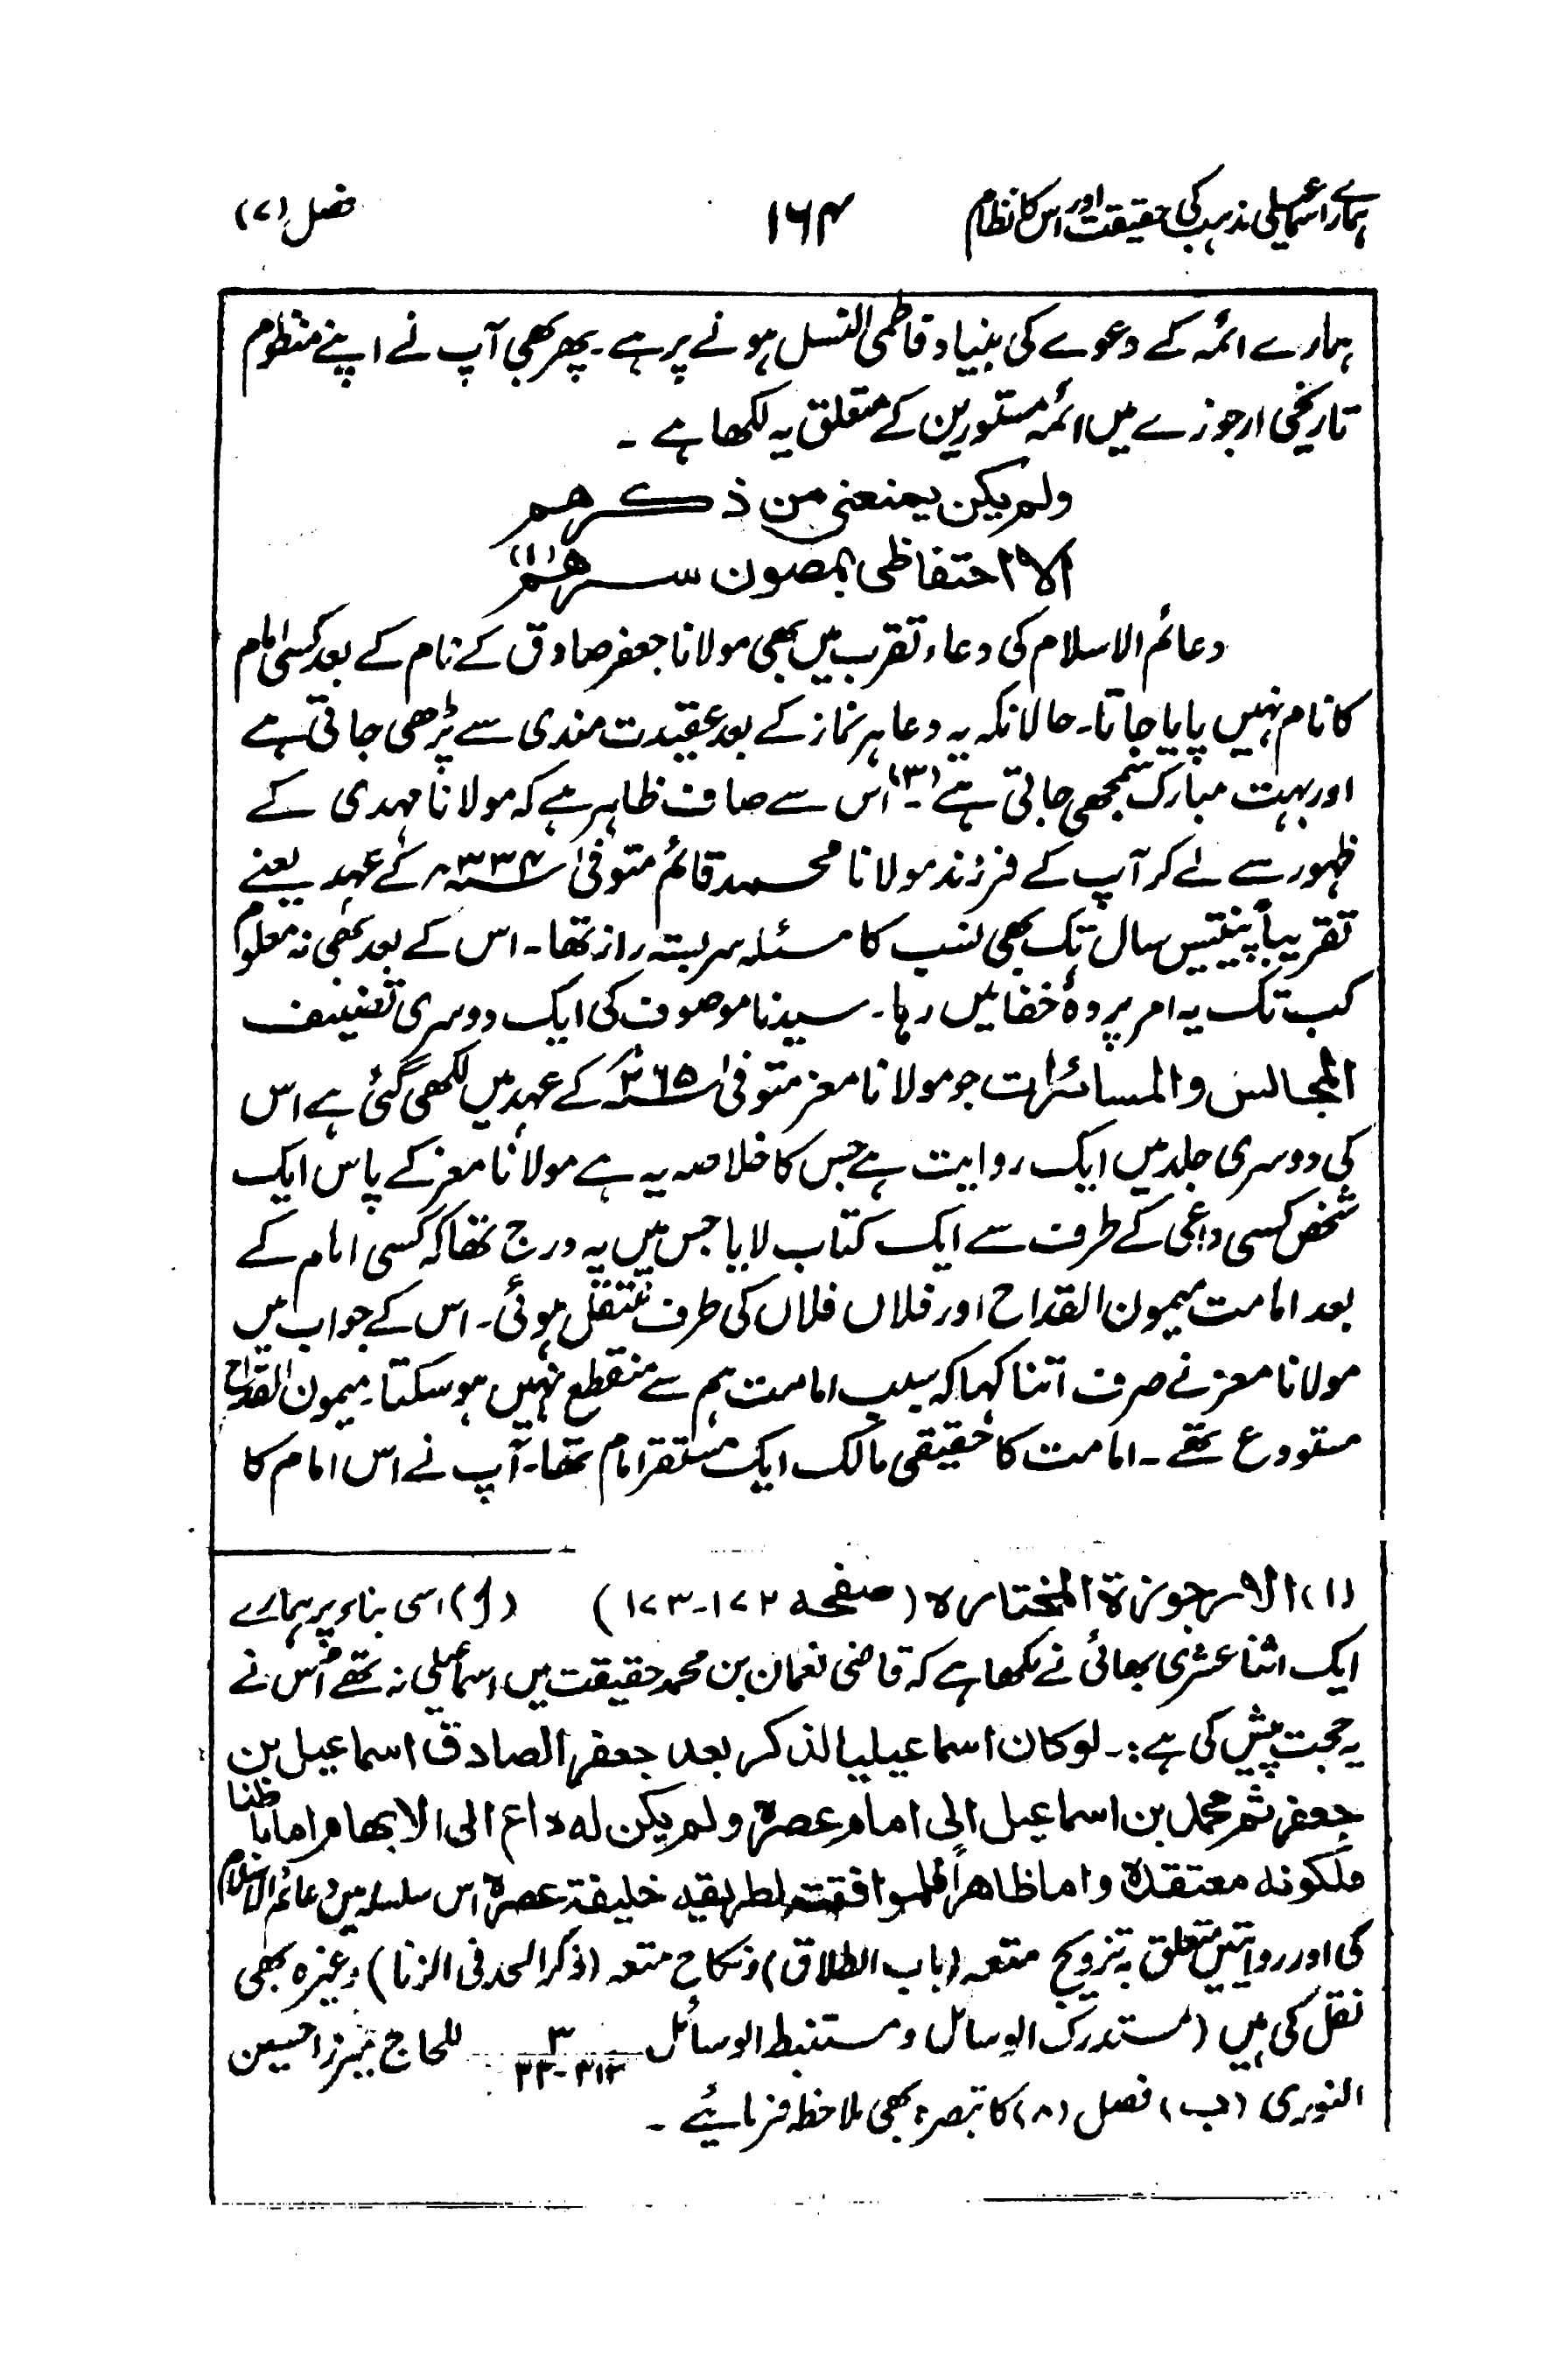 ہمارے اسماعیلی مذہب کی حقیقت اور اس کا نظام ۱۶۴ فصل (۷)
ہمارے ائمہ کے دعوے کی بنیاد فاطمی النسل ہونے پر ہے۔ پھر بھی آپ نے اپنے منظوم
تاریخی ارجوزے میں ائمہ مستورین کے متعلق یہ لکھا ہے ۔
ولم یکن یمنعنی من ذکرھم
الا احتفاظی بمصون سرھم (۱)
دعائم الاسلام کی دعاء تقرب میں بھی مولانا جعفر صادق کے نام کے بعد کسی امام
کا نام نہیں پایا جاتا۔ حالانکہ یہ دعا ہر نماز کے بعد عقیدت مندی سے پڑھی جاتی ہے
اور بہت مبارک سمجھی جاتی ہے (۳)۔ اس سے صاف ظاہر ہے کہ مولانا مہدی کے
ظہور سے لے کر آپ کے فرزند مولانا محمد قائم متوفی ۳۳۴ھ کے عہد یعنے
تقریباً پینتیس سال تک بھی نسب کا مسئلہ سربستہ راز تھا۔ اس کے بعد بھی نہ معلوم
کب تک یہ امر پردۂ خفا میں رہا۔ سیدنا موصوف کی ایک دوسری تصنیف
المجالس والمسائرات جو مولانا معز متوفی ۳۶۵ھ کے عہد میں لکھی گئی ہے اس
کی دوسری جلد میں ایک روایت ہے جس کا خلاصہ یہ ہے مولانا معز کے پاس ایک
شخص کسی داعی کے طرف سے ایک کتاب لایا جس میں یہ درج تھا کہ کسی امام کے
بعد امامت میمون القداح اور فلاں فلاں کی طرف منتقل ہوئی۔ اس کے جواب میں
مولانا معز نے صرف اتنا کہا کہ سبب امامت ہم سے منقطع نہیں ہو سکتا۔ میمون القداح
مستودع تھے ۔ امامت کا حقیقی مالک ایک مستقر امام تھا۔ آپ نے اس امام کا
(۱) الارجوزۃ المختارہ (صفحہ ۱۷۲-۱۷۳) (ا) اسی بناء پر ہمارے
ایک اثنا عشری بھائی نے لکھا ہے کہ قاضی نعمان بن محمد حقیقت میں اسماعیلی نہ تھے اس نے
یہ حجت پیش کی ہے:۔ لوکان اسماعیلیا لذکر بعد جعفر الصادق اسماعیل بن
جعفر ثم محمد بن اسماعیل الی امام عصرہ ولم یکن لہ داع الی الابھام اما باطنا
فلکونہ معتقدہ واما ظاھراً فلموافقتہ لطریقیہ خلیفۃ عصرہ اس سلسلہ میں دعائم الاسلام
کی اور روایتیں متعلق بہ تزویج متعہ (باب الطلاق) ونکاح متعہ (ذکر الحد فی الزنا) وغیرہ بھی
نقل کی ہیں (مستدرک الوسائل ومستنبط الوسائل ۳ ۳۱۳-۳۲ للحاج میرزا حسین
النوری (ب) فصل (۸) کا تبصرہ بھی ملاحظہ فرمائیے ۔